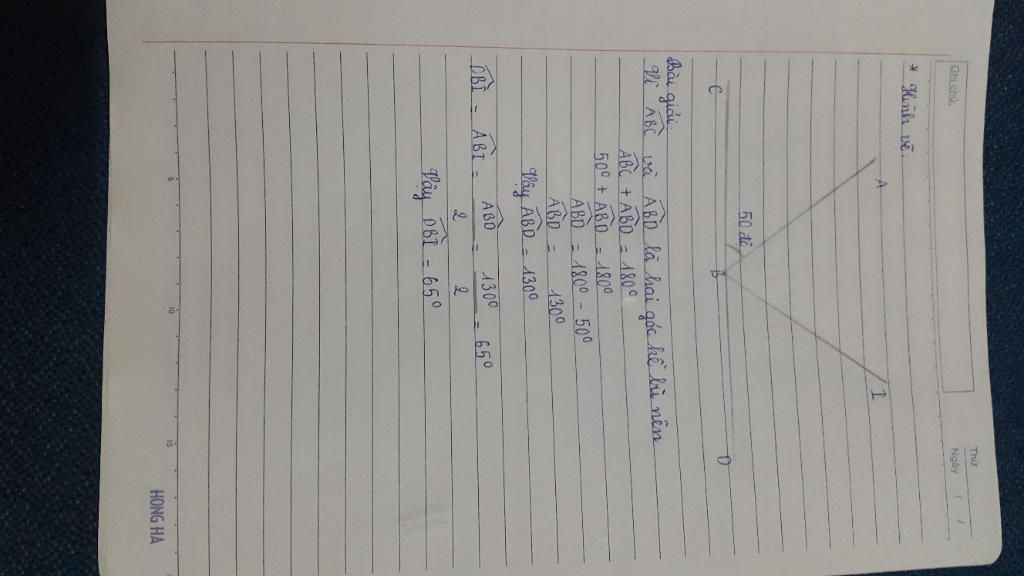 Ghi chú:
Thứ
Ngày / /
* Hình vẽ:
A
I
50 độ
C
B
D
Bài giải:
Vì ABC và ABD là hai góc kề bù nên
ABC + ABD = 180⁰
50⁰ + ABD = 180⁰
ABD = 180⁰ - 50⁰
ABD = 130⁰
Vậy ABD = 130⁰
DBI = ABI = ABD/2 = 130⁰/2 = 65⁰
Vậy DBI = 65⁰
5 10 15
HONG HA